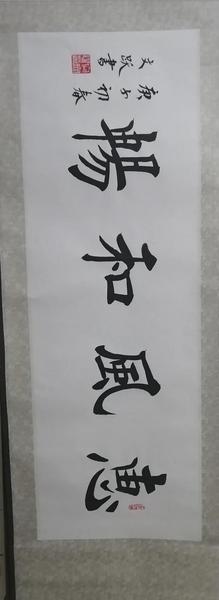 惠風和暢
庚子初春
文跃書